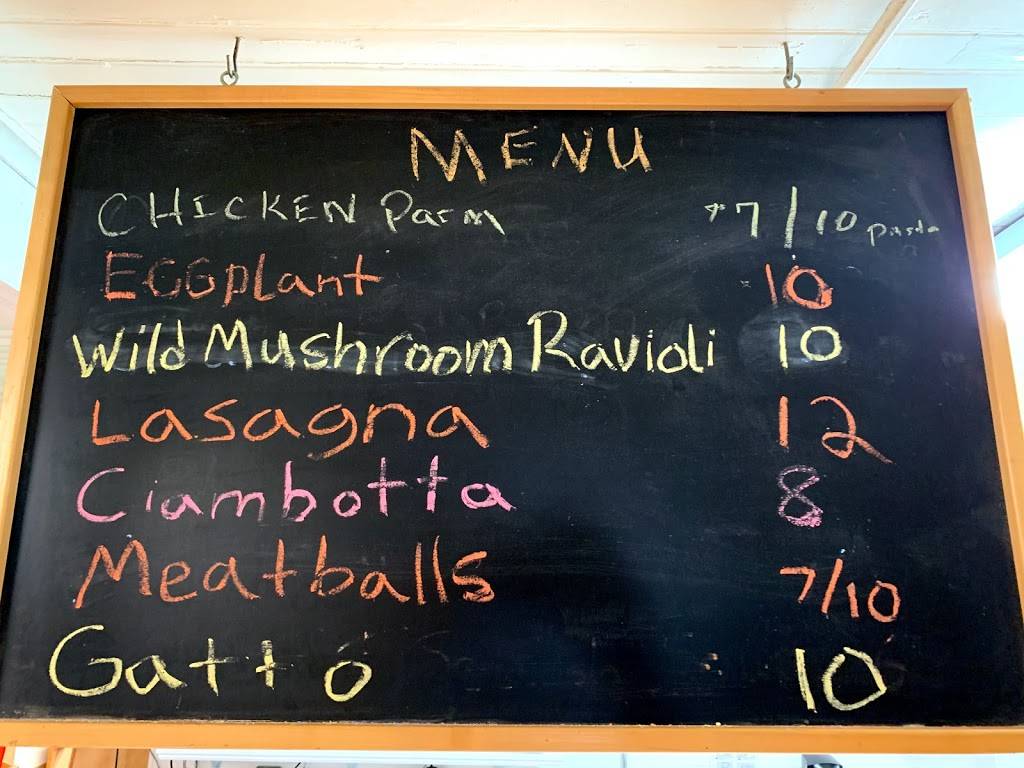 MENU
CHICKEN Parm $7/10 pasta
EGGplant 10
Wild Mushroom Ravioli 10
Lasagna 12
Ciambotta 8
Meatballs 7/10
Gattó 10